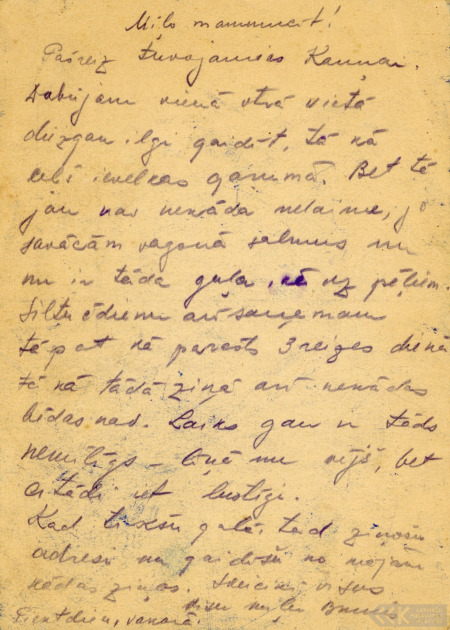 Mīļo mammucīt!
Pašreiz tuvojamies Kauņai.
Dabūjām vienā otrā vietā
diezgan ilgi gaidīt, tā kā
ceļš ievelkas garumā. Bet tā
jau nav nekāda nelaime, jo
savācām vagonā salmus un
nu ir tāda guļa, kā uz pēļiem.
Siltu ēdienu arī saņemam
tāpat kā parasts 3 reizes dienā
tā kā tādā ziņā arī nekādas
bēdas nav. Laiks gan ir tāds
nemīlīgs – līņā un vējš, bet
citādi iet lustīgi.
Kad tiksšu galā, tad ziņošu
adresi un gaidīšu no mājām
kādas ziņas. Sveicini visus
Visu mīļu
Piektdien, vakarā.